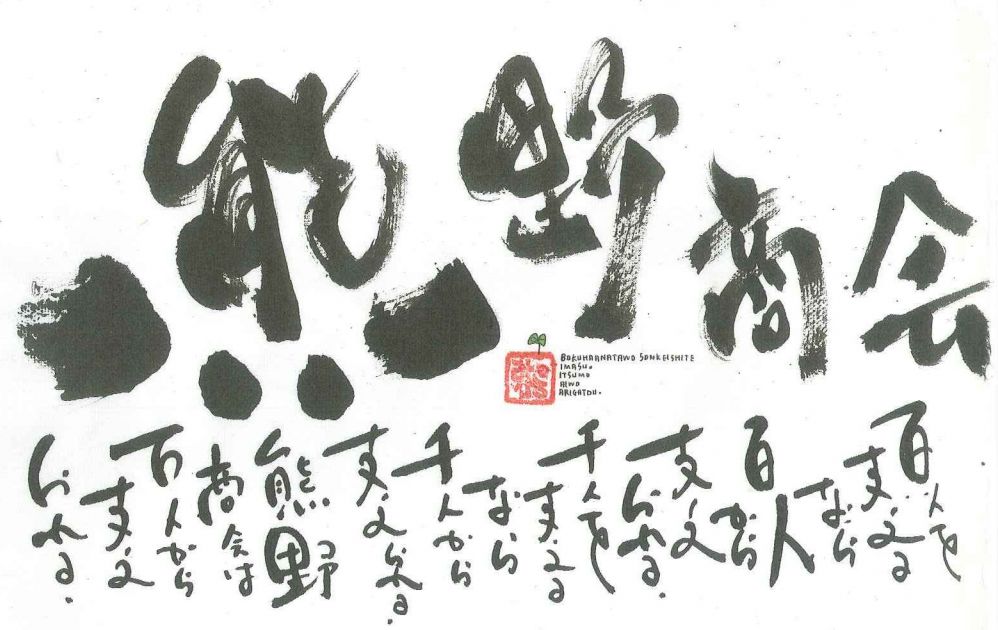 熊野商会
BOKUHAANATAWO SONKEISHITE
IMASU.
ITSUMO
AIWO
ARIGATOU.
百人を
支える
なら
百人
から
支え
られる.
千人を
支える
なら
千人から
支えられる.
熊野
商会は
万人から
支え
られる.